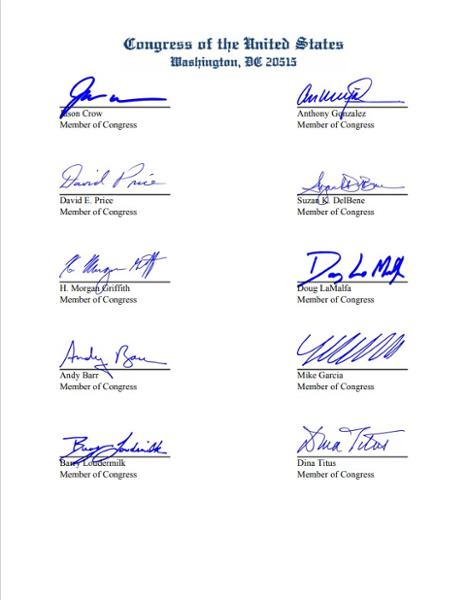 Congress of the United States
Washington, DC 20515
Jason Crow
Member of Congress
Anthony Gonzalez
Member of Congress
David Price
David E. Price
Member of Congress
Suzan K. DelBene
Member of Congress
H. Morgan Griffith
Member of Congress
Doug LaMalfa
Doug LaMalfa
Member of Congress
Andy Barr
Andy Barr
Member of Congress
Mike Garcia
Member of Congress
Barry Loudermilk
Barry Loudermilk
Member of Congress
Dina Titus
Dina Titus
Member of Congress